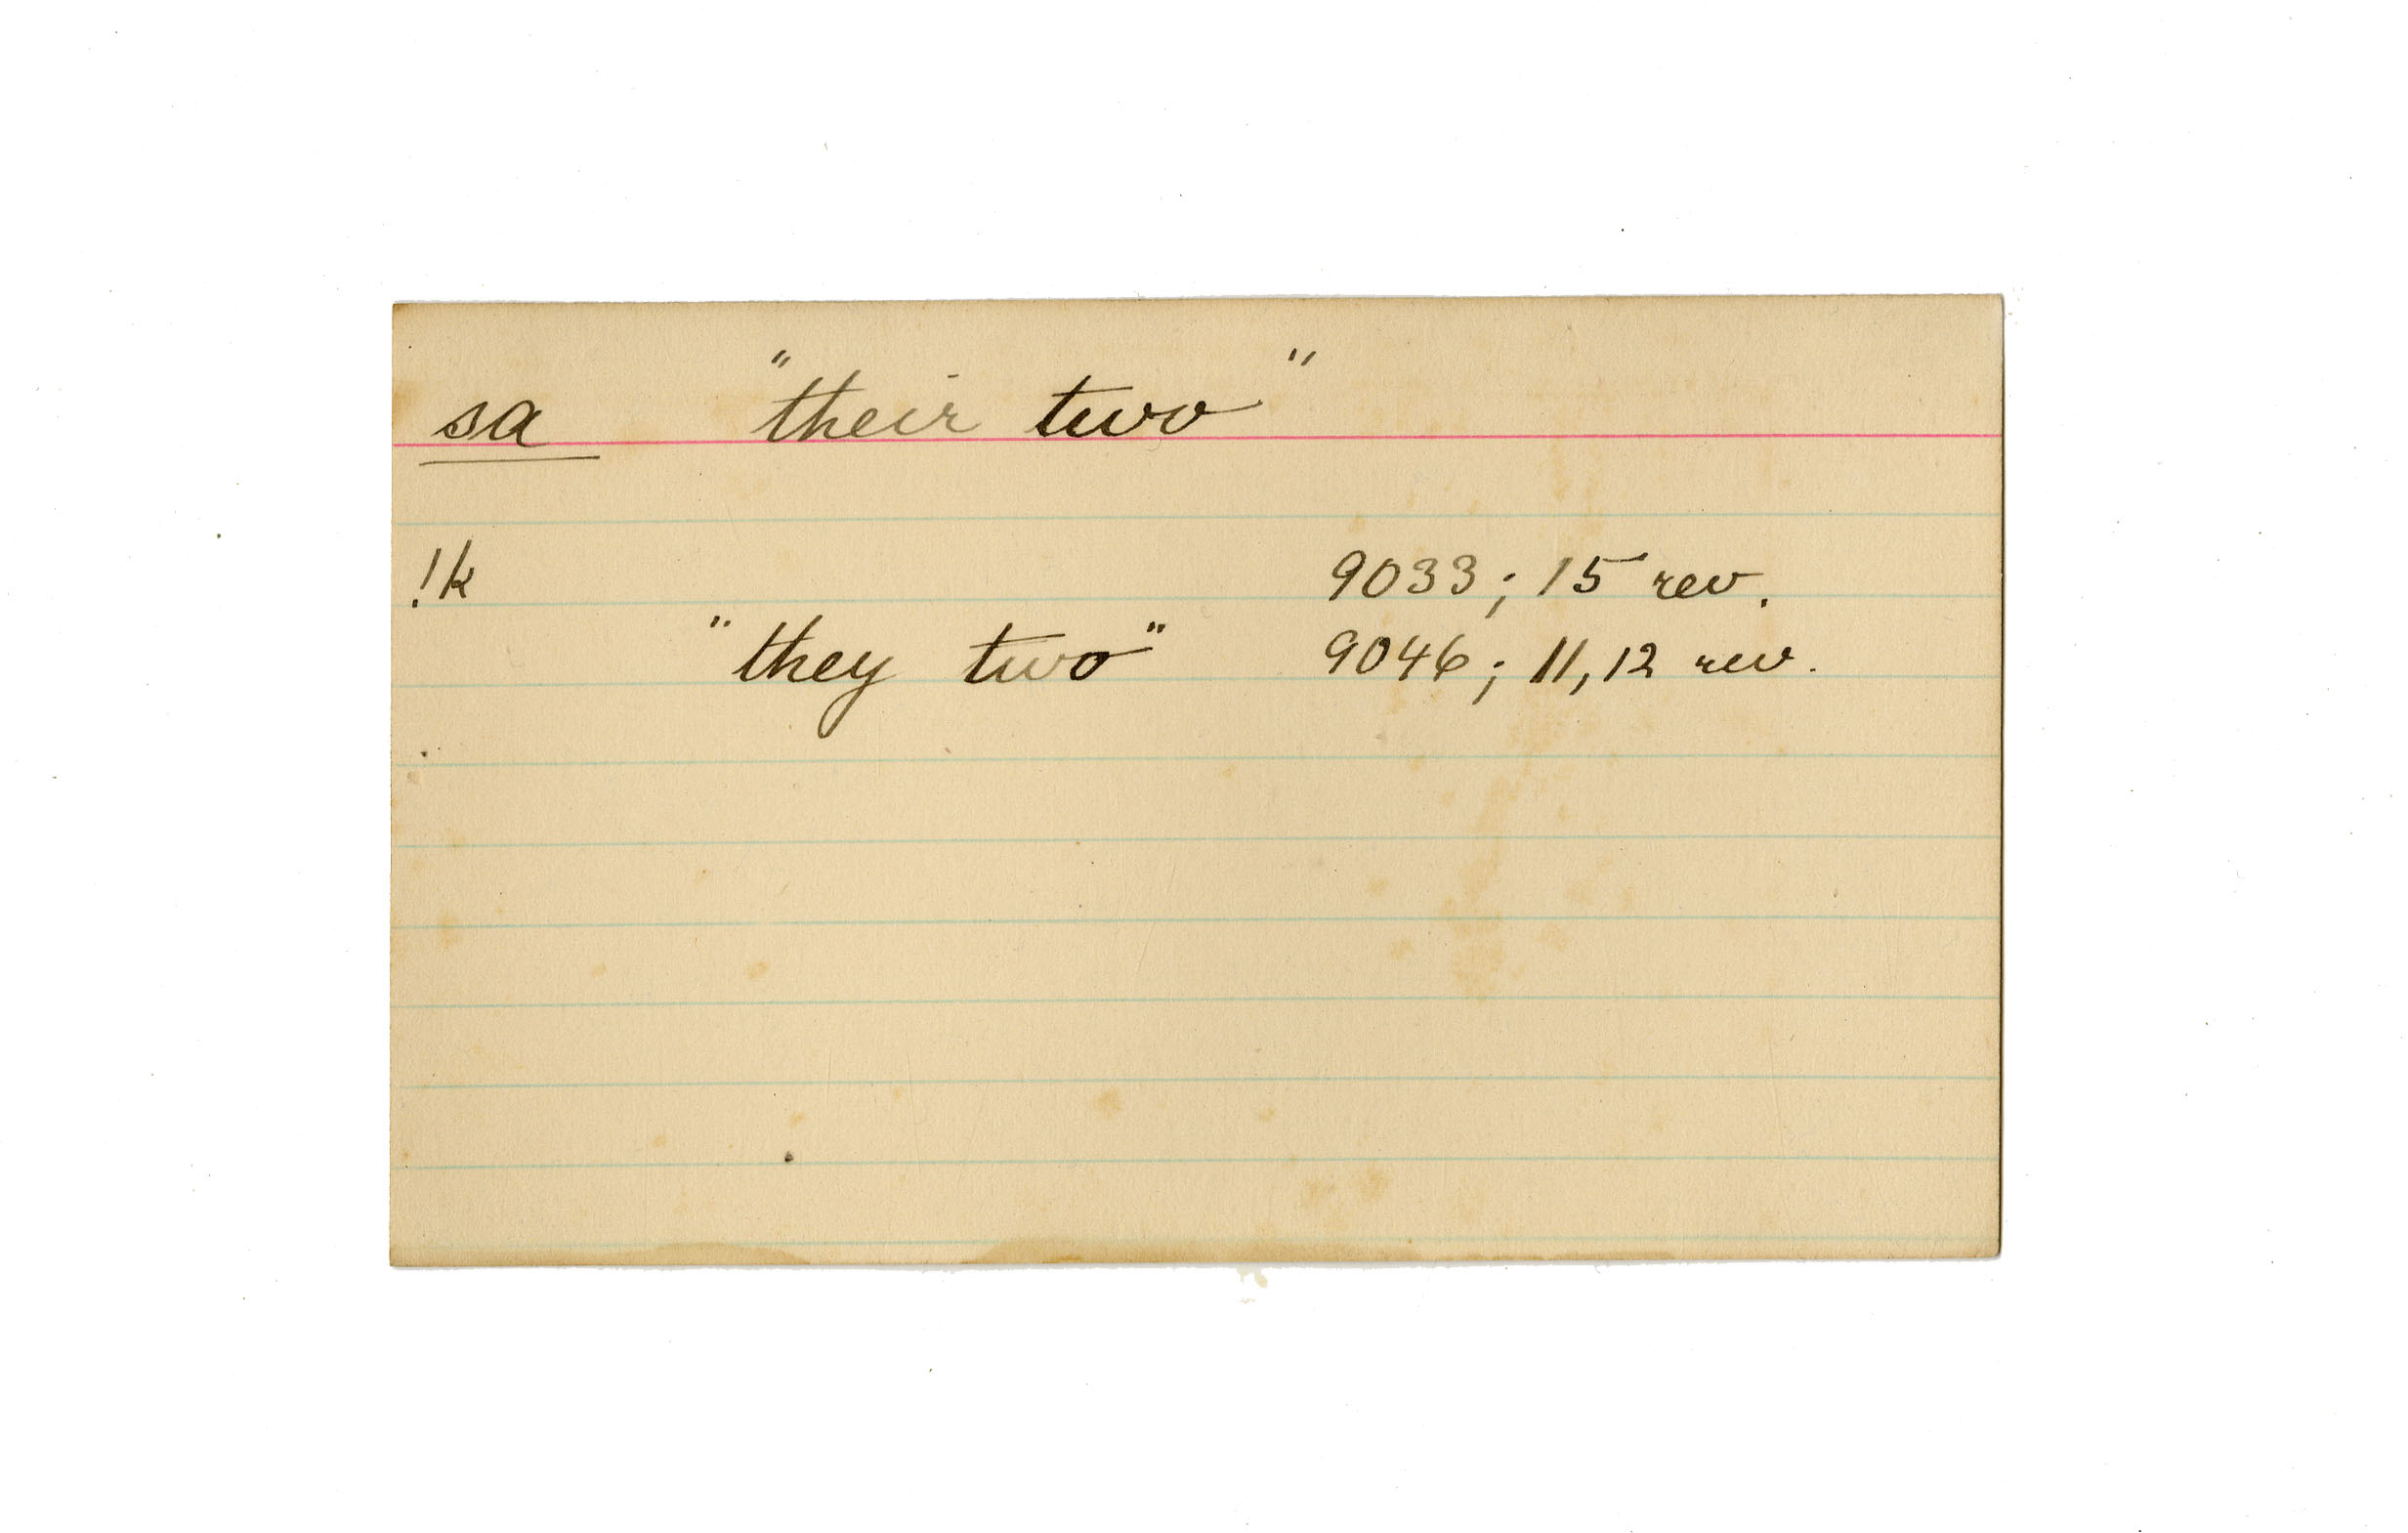 sa "their two"
!k 9033; 15 rev.
"they two" 9046; 11, 12 rev.